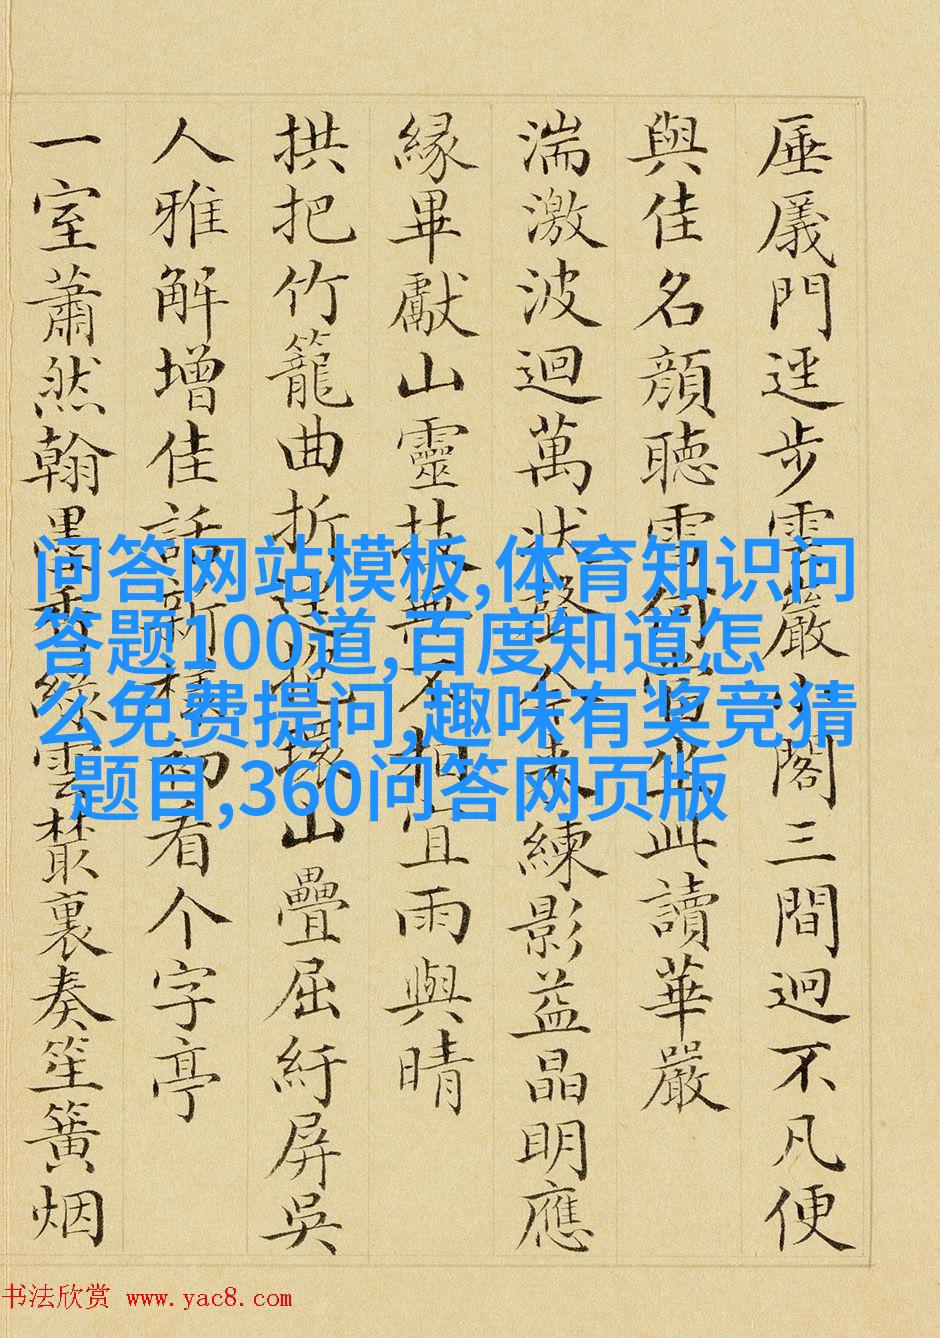 厜㕒門逕步雲巖小閣三間迥不凡便
與佳名顏聽雪何當坐此讀華嚴
湍激波迴萬狀聲練影益晶明應
緣畢獻山靈技無不相宜雨與晴
拱把竹籠曲折環山疊屈紆屏吳
人雅解增佳話新構初看个字亭
一室蕭然翰墨香綠雲叢裏奏笙簧烟
问答网站模板,体育知识问
答题100道,百度知道怎
么免费提问,趣味有奖竞猜
题目,360问答网页版
书法欣赏 www.yac8.com